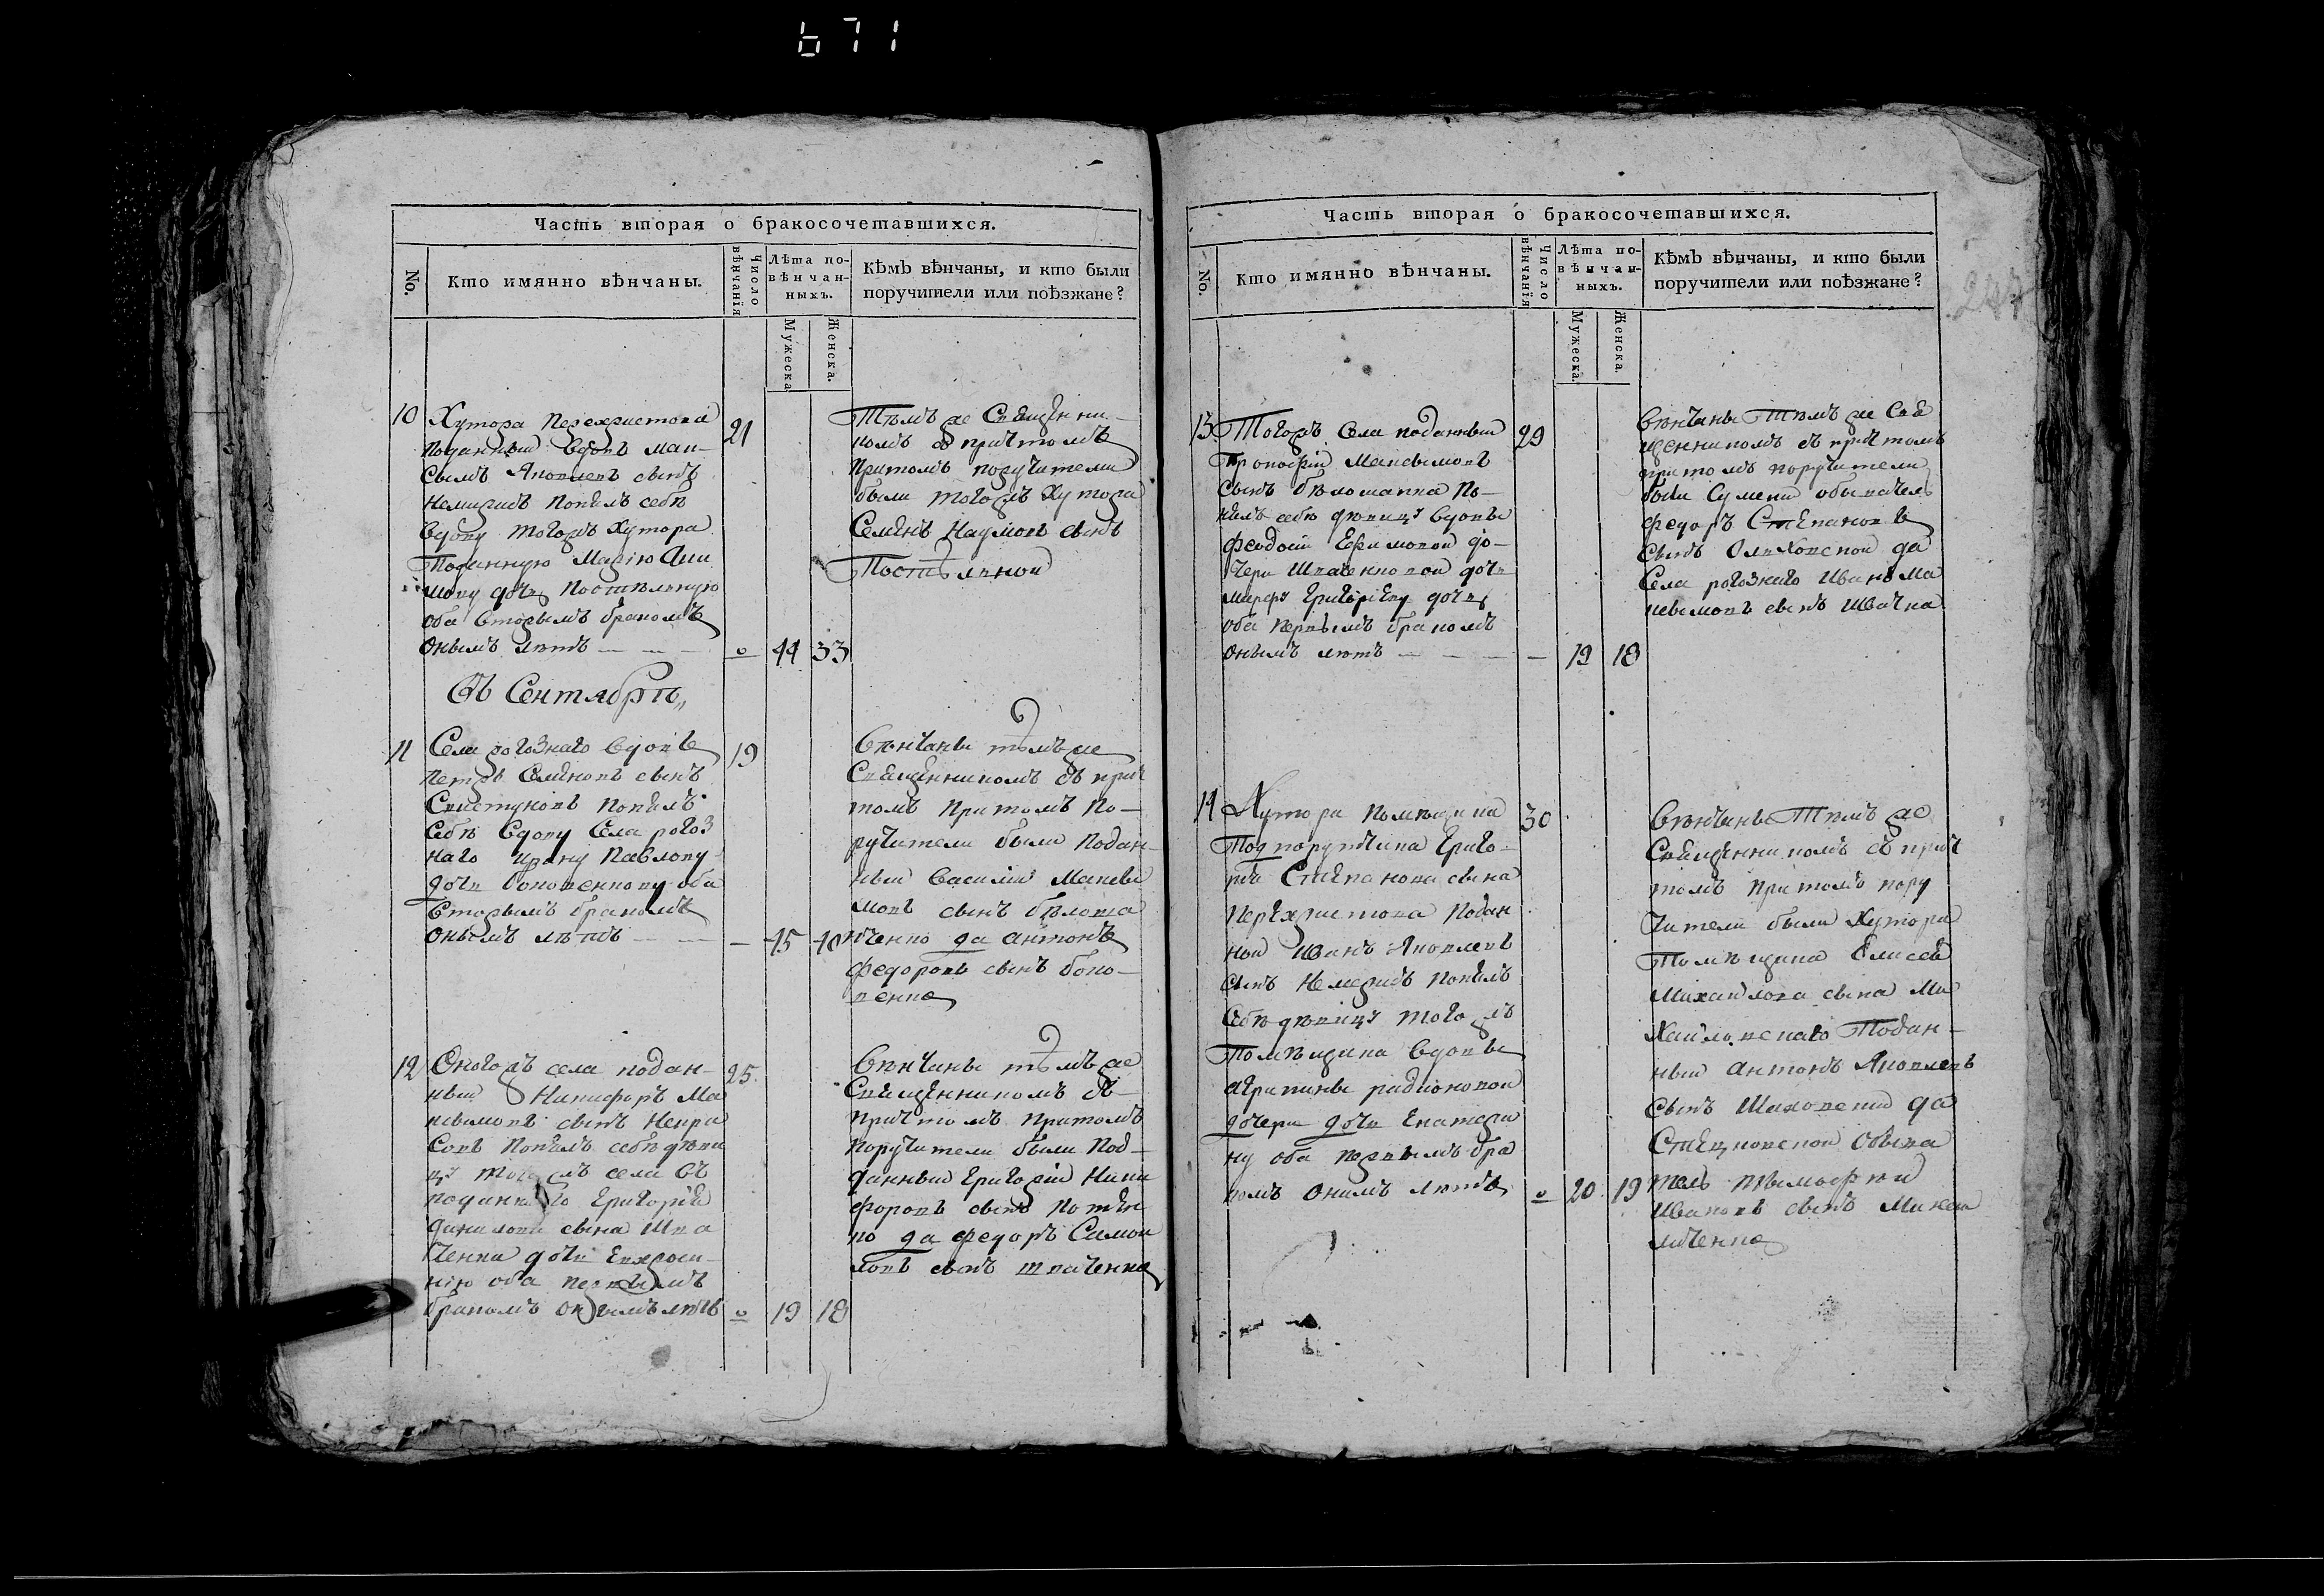 671
Часть вторая о бракосочетавшихся.
No.
Кто имянно вѣнчаны.
Число вѣнчанія
Лѣта повѣнчанныхъ.
Мужеска
Женска.
Кѣмъ вѣнчаны, и кто были
поручители или поѣзжане?
10
Хутора Перехристова
поданный вдовъ Мак-
симъ Яковлевъ сынъ
Немеридъ понялъ себѣ
вдову тогожъ хутора
Поданную Марію
дочь Постѣльную
оба вторымъ бракомъ
онымъ лѣтъ
21
44
33
Тѣмъ же Священни-
комъ съ причтомъ
притомъ поручители
были тогожъ хутора
Семенъ Наумовъ сынъ
Постѣльной
Въ Сентябрѣ
11
Села рогознаго вдовъ
Петръ Семеновъ сынъ
Свистуновъ понялъ
себѣ вдову Села рогоз
наго Ирину Павлову
дочь оба
вторымъ бракомъ
онымъ лѣтъ
19
45
40
Вѣнчаны тѣмъ же
Священникомъ съ прич
томъ притомъ по-
ручители были подан-
ный Василій Макси
мовъ сынъ Бѣлома
ченко да Антонъ
Федоровъ сынъ
12
Оногожъ села подан-
ный Никифоръ Ма
ксимовъ сынъ Некра
совъ понялъ себѣ дѣви
цу тогожъ села
поданнаго Григорія
Данилова сына Шва
ченка дочь Евфроси-
нію оба первымъ
бракомъ онымъ лѣтъ
25
19
18
Вѣнчаны тѣмъ же
Священникомъ съ
причтомъ притомъ
поручители были под-
данный Григорій Ники
форовъ сынъ
да Федоръ Самои
ловъ сынъ Шваченко
Часть вторая о бракосочетавшихся.
No.
Кто имянно вѣнчаны.
Число вѣнчанія
Лѣта повѣнчанныхъ.
Мужеска.
Женска.
Кѣмъ вѣнчаны, и кто были
поручители или поѣзжане?
247
13
Тогожъ Села поданный
Прокофій Максимовъ
сынъ Бѣломашка по-
нялъ себѣ дѣвицу вдовы
Феодосіи Ефимовой до-
чери Шваченковой дочь
Марфу Григоріеву дочь
оба первымъ бракомъ
онымъ лѣтъ
29
19
18
Вѣнчаны Тѣмъ же Свя
щенникомъ съ причтомъ
притомъ поручители
были Сумскій обыватель
Федоръ Степановъ
сынъ Ольховской да
Села рогознаго Иванъ Ма
ксимовъ сынъ Швачка
14
Хутора помѣщика
Подпоручика Григо-
рія Степанова сына
Перехристова подан
ной Иванъ Яковлевъ
сынъ Немеридъ понялъ
себѣ дѣвицу тогожъ
Помѣщика вдовы
Агрипины Радионовой
дочери дочь Екатери
ну оба первымъ бра
комъ онымъ лѣтъ
30
20
19
Вѣнчаны Тѣмъ же
Священникомъ съ прич
томъ притомъ пору
чители были хутора
Помѣщика Елисея
Михайлова сына Ми
хайловскаго Подан-
ный Антонъ Яковлевъ
сынъ да
Стецковской обыва
тель Тимофѣй
Ивановъ сынъ